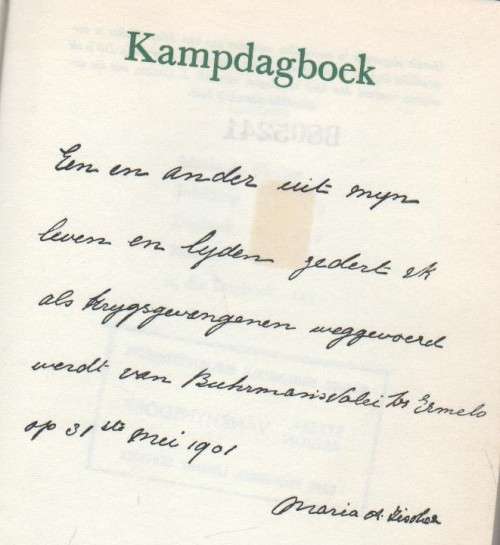 Kampdagboek
Een en ander uit mijn
leven en lyden zedert ik
als krygsgevangenen weggevoerd
werdt van Buhrmansvalei tot Ermelo
op 31ste Mei 1901
Maria A. Fischer
BS05241